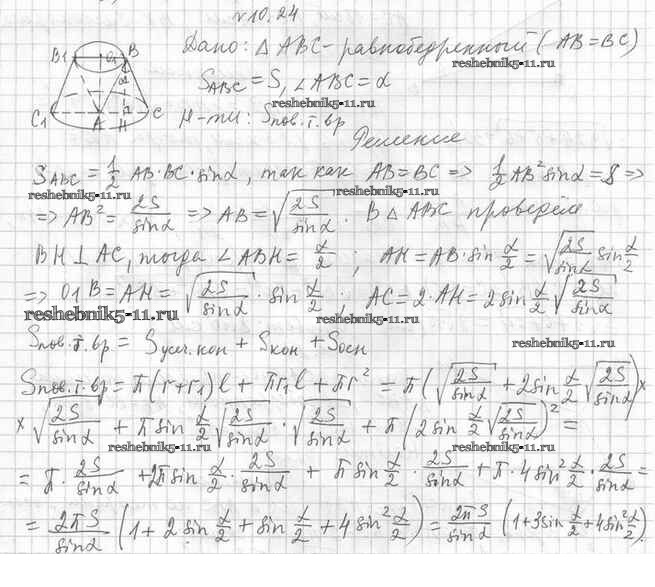 №10.24
Дано: △ABC - равнобедренный (AB=BC)
reshebnik5-11.ru
S_ABC = S, ∠ABC = α
reshebnik5-11.ru
Н-ти: Sпов.т.вр
reshebnik5-11.ru
B1 O1 B α C1 A H C
Решение
S_ABC = 1/2 AB·BC·sinα, так как AB=BC => 1/2 AB² sinα = S =>
reshebnik5-11.ru reshebnik5-11.ru
=> AB² = 2S/sinα => AB = √(2S/sinα). В △ABC проведём
BH ⊥ AC, тогда ∠ABH = α/2; AH = AB·sin α/2 = √(2S/sinα) sin α/2
=> O1B = AH = √(2S/sinα) · sin α/2; AC = 2·AH = 2sin α/2 √(2S/sinα)
reshebnik5-11.ru reshebnik5-11.ru
Sпов.т.вр = Sусеч.кон + Sкон + Sосн
reshebnik5-11.ru
Sпов.т.вр = π(r+r1)l + πr1l + πr² = π(√(2S/sinα) + 2sin α/2 √(2S/sinα))×
× √(2S/sinα) + π sin α/2 √(2S/sinα) · √(2S/sinα) + π(2sin α/2 √(2S/sinα))² =
reshebnik5-11.ru reshebnik5-11.ru
= π · 2S/sinα + 2π sin α/2 · 2S/sinα + π sin α/2 · 2S/sinα + π · 4sin² α/2 · 2S/sinα =
= 2πS/sinα (1 + 2sin α/2 + sin α/2 + 4sin² α/2) = 2πS/sinα (1+3sin α/2 + 4sin² α/2).